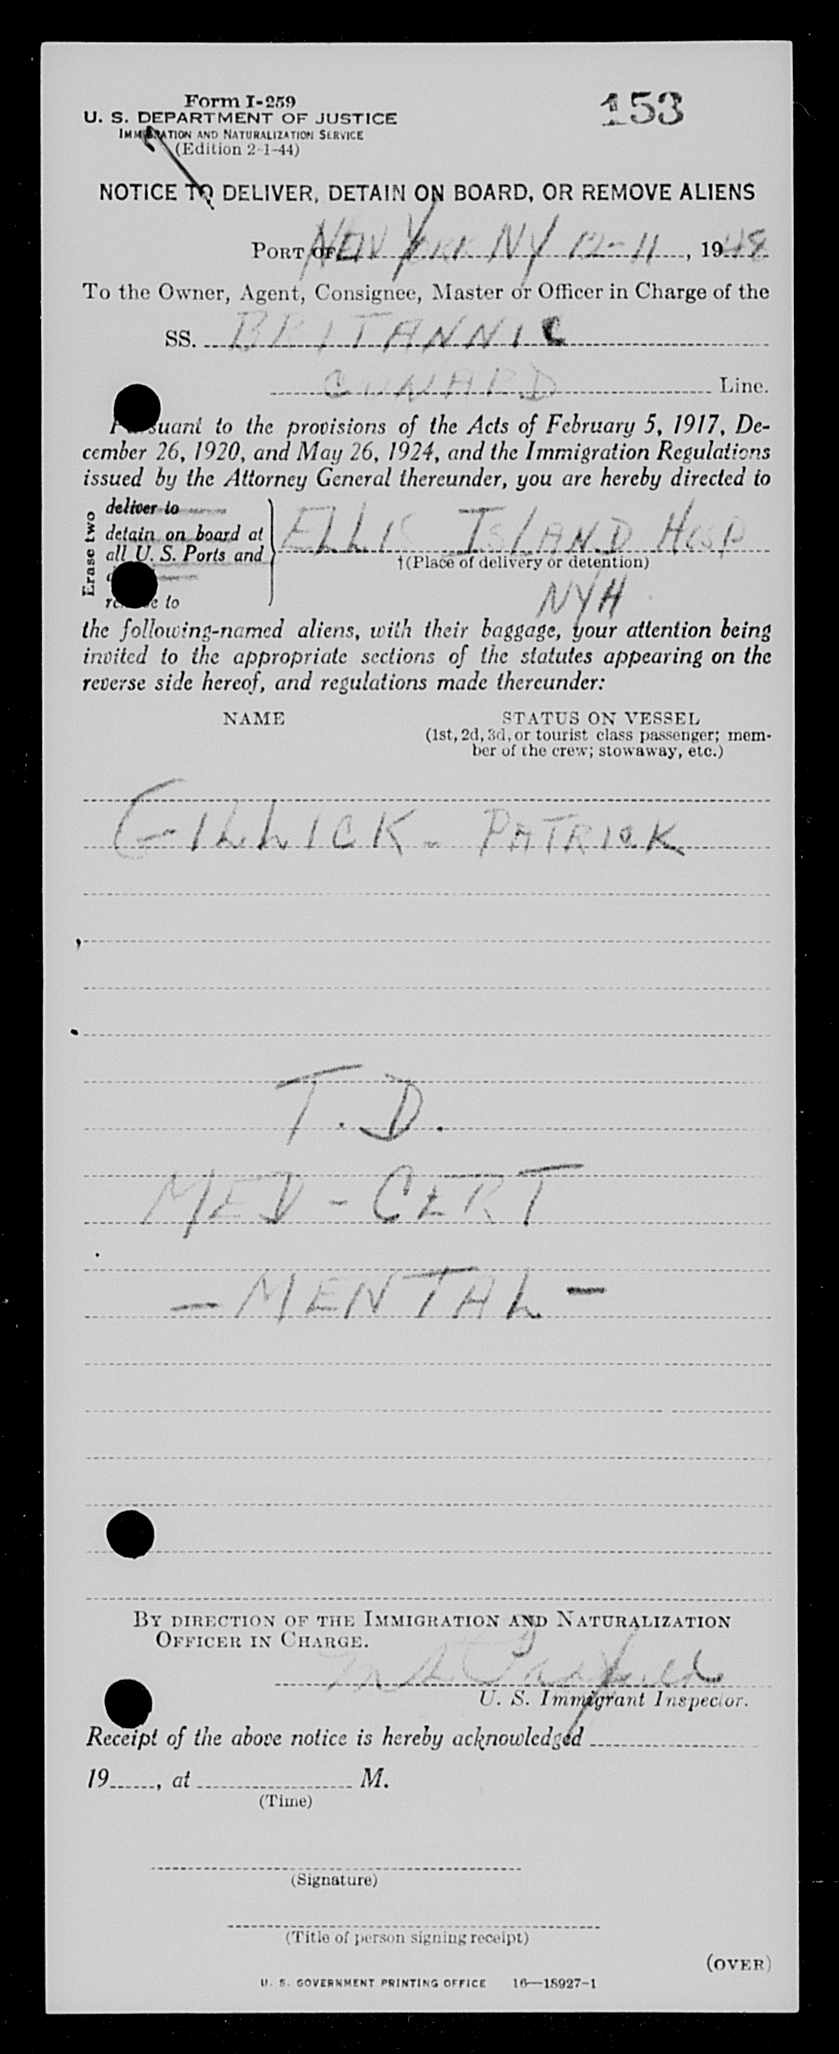 Form I-259
153
U. S. DEPARTMENT OF JUSTICE
IMMIGRATION AND NATURALIZATION SERVICE
(Edition 2-1-44)
NOTICE TO DELIVER, DETAIN ON BOARD, OR REMOVE ALIENS
PORT OF NEW YORK NY 12-11, 1948
To the Owner, Agent, Consignee, Master or Officer in Charge of the
SS. BRITANNIC
CUNARD Line.
Pursuant to the provisions of the Acts of February 5, 1917, De-
cember 26, 1920, and May 26, 1924, and the Immigration Regulations
issued by the Attorney General thereunder, you are hereby directed to
Erase two
deliver to
detain on board at
all U. S. Ports and
remove to
ELLIS ISLAND HOSP
†(Place of delivery or detention)
NYH
the following-named aliens, with their baggage, your attention being
invited to the appropriate sections of the statutes appearing on the
reverse side hereof, and regulations made thereunder:
NAME STATUS ON VESSEL
(1st, 2d, 3d, or tourist class passenger; mem-
ber of the crew; stowaway, etc.)
GILLICK - PATRICK
T.D.
MED - CERT
- MENTAL -
BY DIRECTION OF THE IMMIGRATION AND NATURALIZATION
OFFICER IN CHARGE.
U. S. Immigrant Inspector.
Receipt of the above notice is hereby acknowledged
19, at M.
(Time)
(Signature)
(Title of person signing receipt)
(OVER)
U. S. GOVERNMENT PRINTING OFFICE 16—18927-1